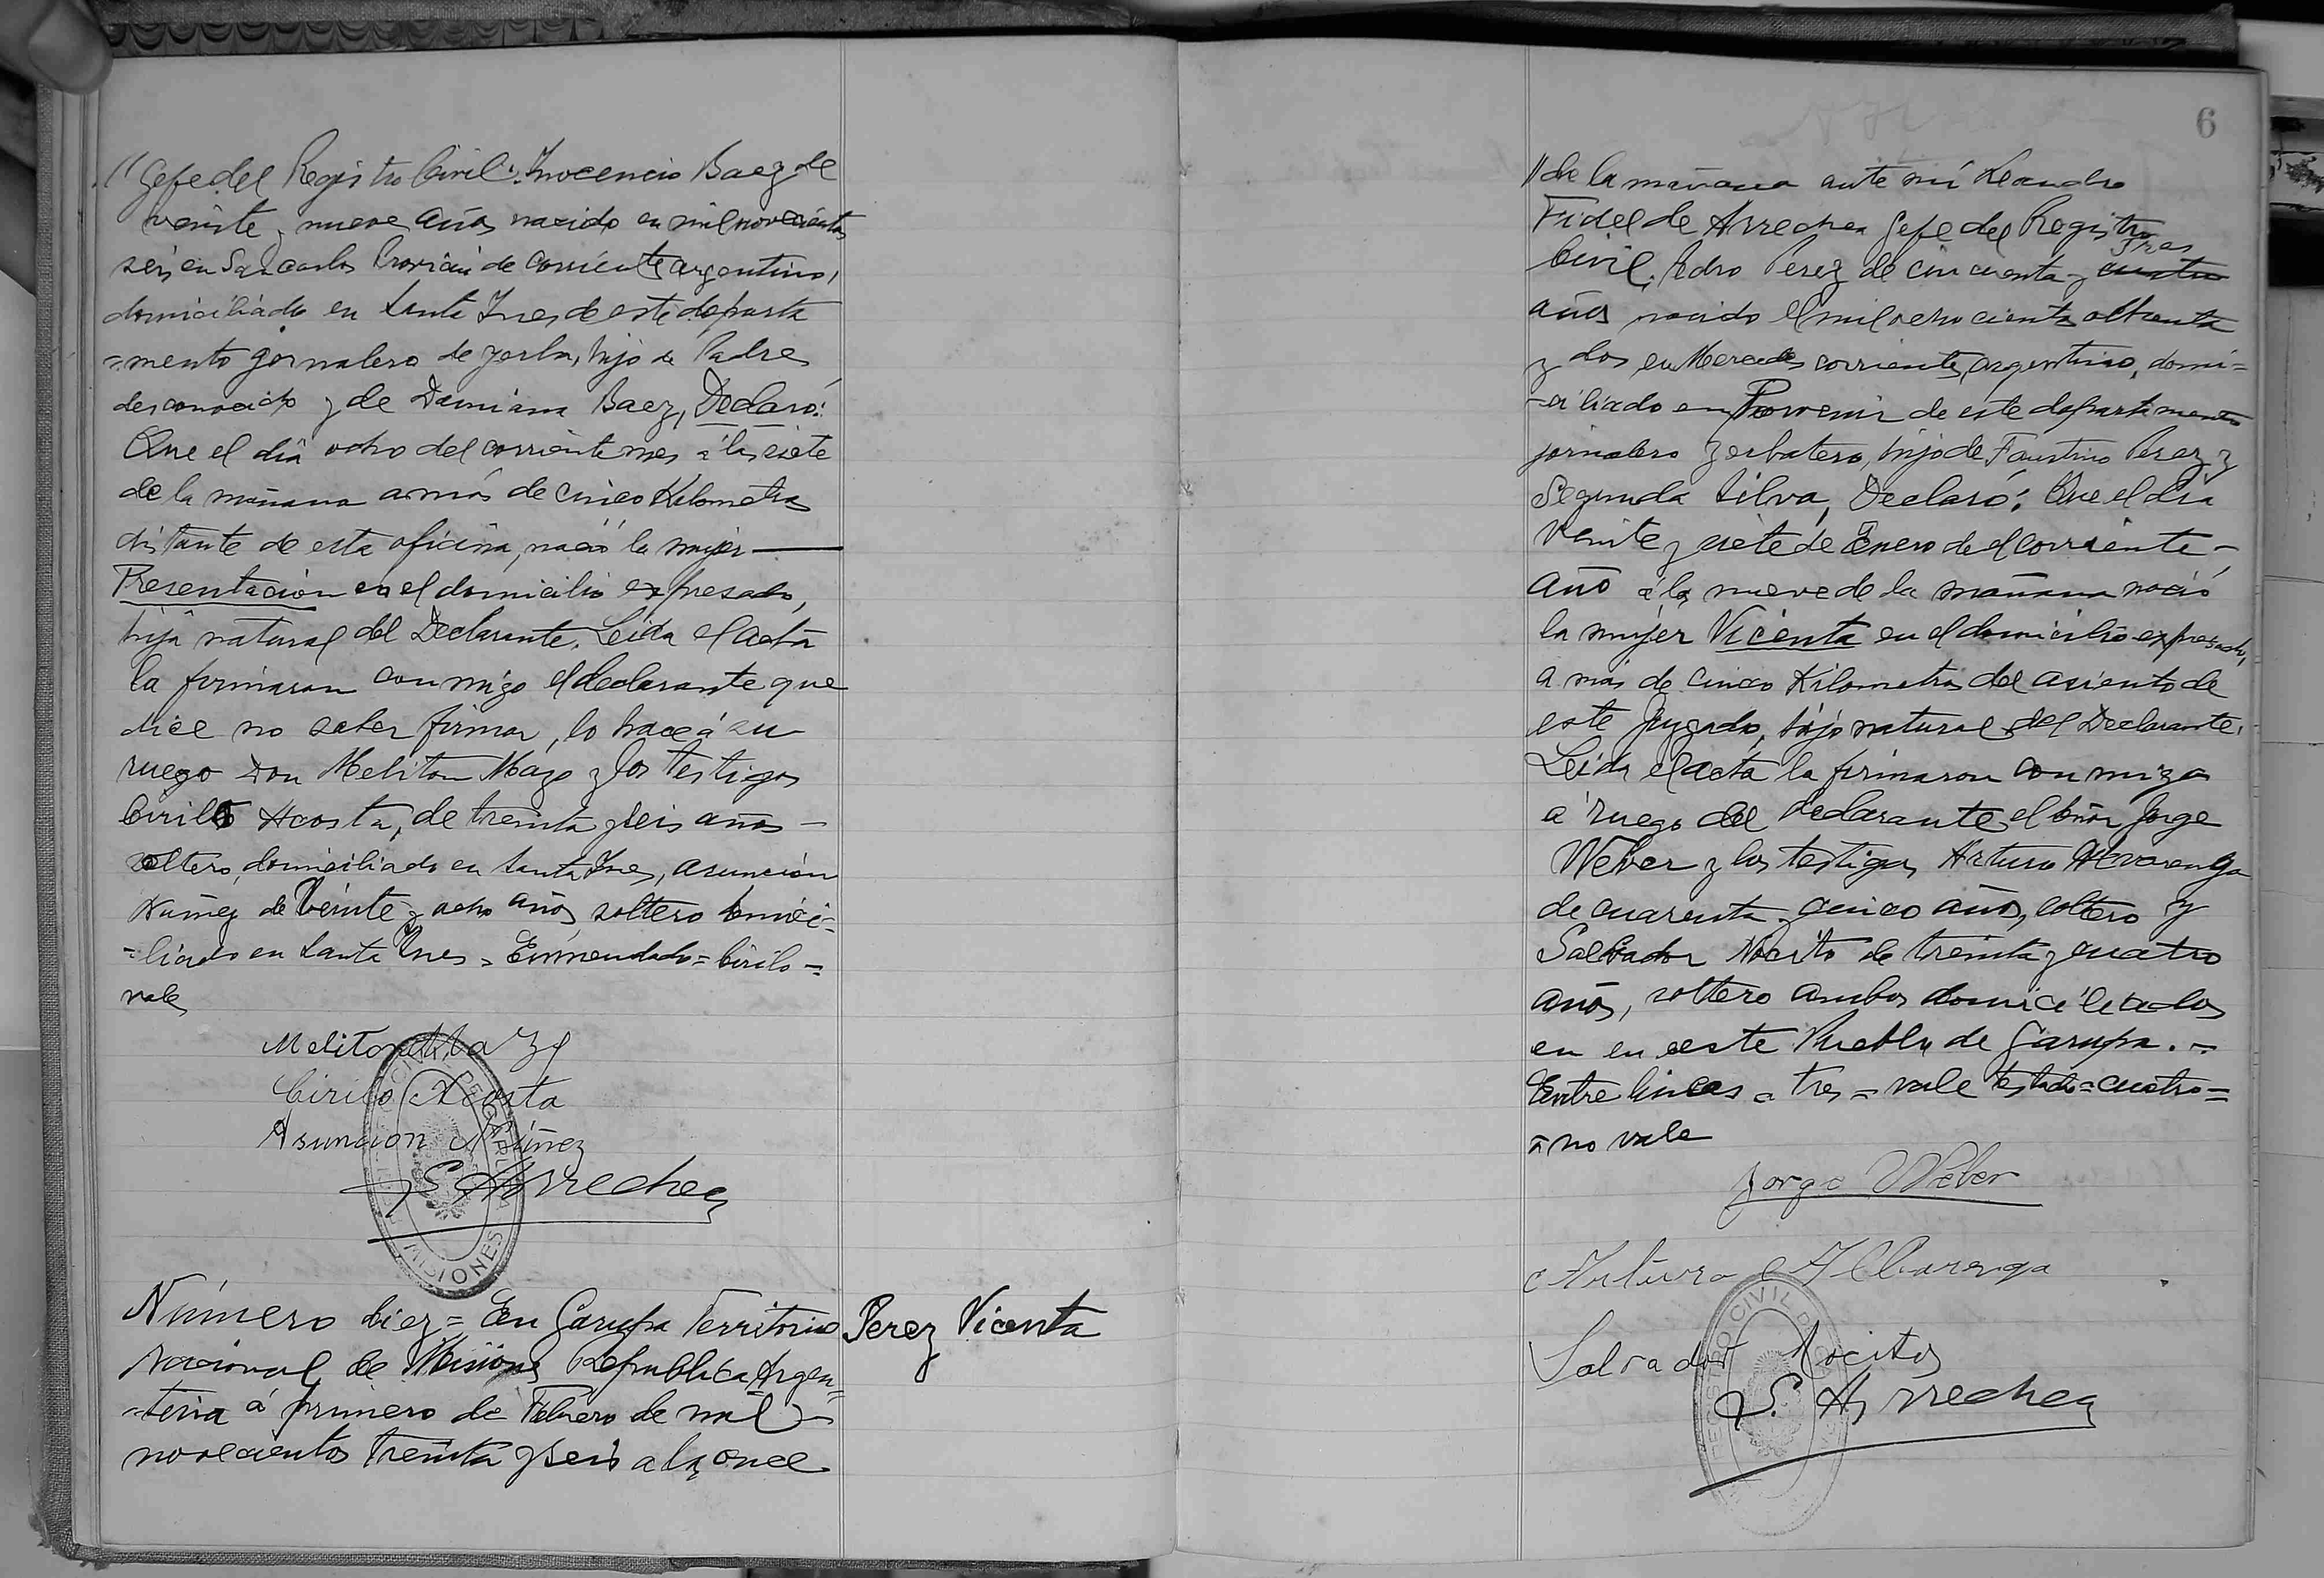 // Gefe del Registro Civil: Inocencio Baez de
veinte y nueve años nacido en mil novecientos
seis en San Carlos Provincia de Corrientes argentino,
domiciliado en Santa Ines de este departa
=mento jornalero de yerba, hijo de Padre
desconocido y de Damiana Baez, Declaró:
Que el día ocho del corriente mes a las siete
de la mañana a más de cinco Kilometros
distante de esta oficina, nació la mujer —
Presentación en el domicilio expresado,
hija natural del Declarante. Leida el acta
la firmaron conmigo el declarante que
dice no saber firmar, lo hace á su
ruego Don Meliton Mazo y los testigos
Cirilo Acosta, de treinta y seis años —
soltero, domiciliado en Santa Ines, Asunción
Nuñez de Veinte y ocho años, soltero domici-
=liado en Santa Ines = Enmendado = Cirilo =
vale
Meliton
Cirilo Acosta
Asuncion Núñez
Arrechea
MISIONES
Número diez = En Garupa Territorio
Nacional de Misiones Republica Argen=
=tina á primero de Febrero de mil
novecientos treinta y seis a las once
Perez Vicenta
6
// de la mañana ante mí Leandro
Fidel de Arrechea Gefe del Registro
tres
Civil. Pedro Perez de cincuenta y cuatro
años nacido el mil ochocientos ochenta
y dos en Mercedes corrientes, argentino, domi=
=ciliado en Porvenir de este departamento
jornalero yerbatero, hijo de Faustino Perez y
Segunda Silva, Declaró: Que el día
Veinte y siete de Enero de el corriente —
año á las nueve de la mañana nació
la mujer Vicenta en el domicilio expresado,
a más de cinco Kilometros del asiento de
este juzgado, hijo natural del Declarante.
Leida el acta la firmaron conmigo
a ruego del declarante el señor Jorge
Weber y los testigos Arturo Alvarenga
de cuarenta y cinco años, soltero y
Salvador Nocito de treinta y cuatro
años, soltero ambos domiciliados
en en este Pueblo de Garupa. =
Entre lineas = tres = vale testado = cuatro =
= no vale
Jorge Weber
Arturo Albarenga
Salvador Nocitos
S. Arrechea
REGISTRO CIVIL